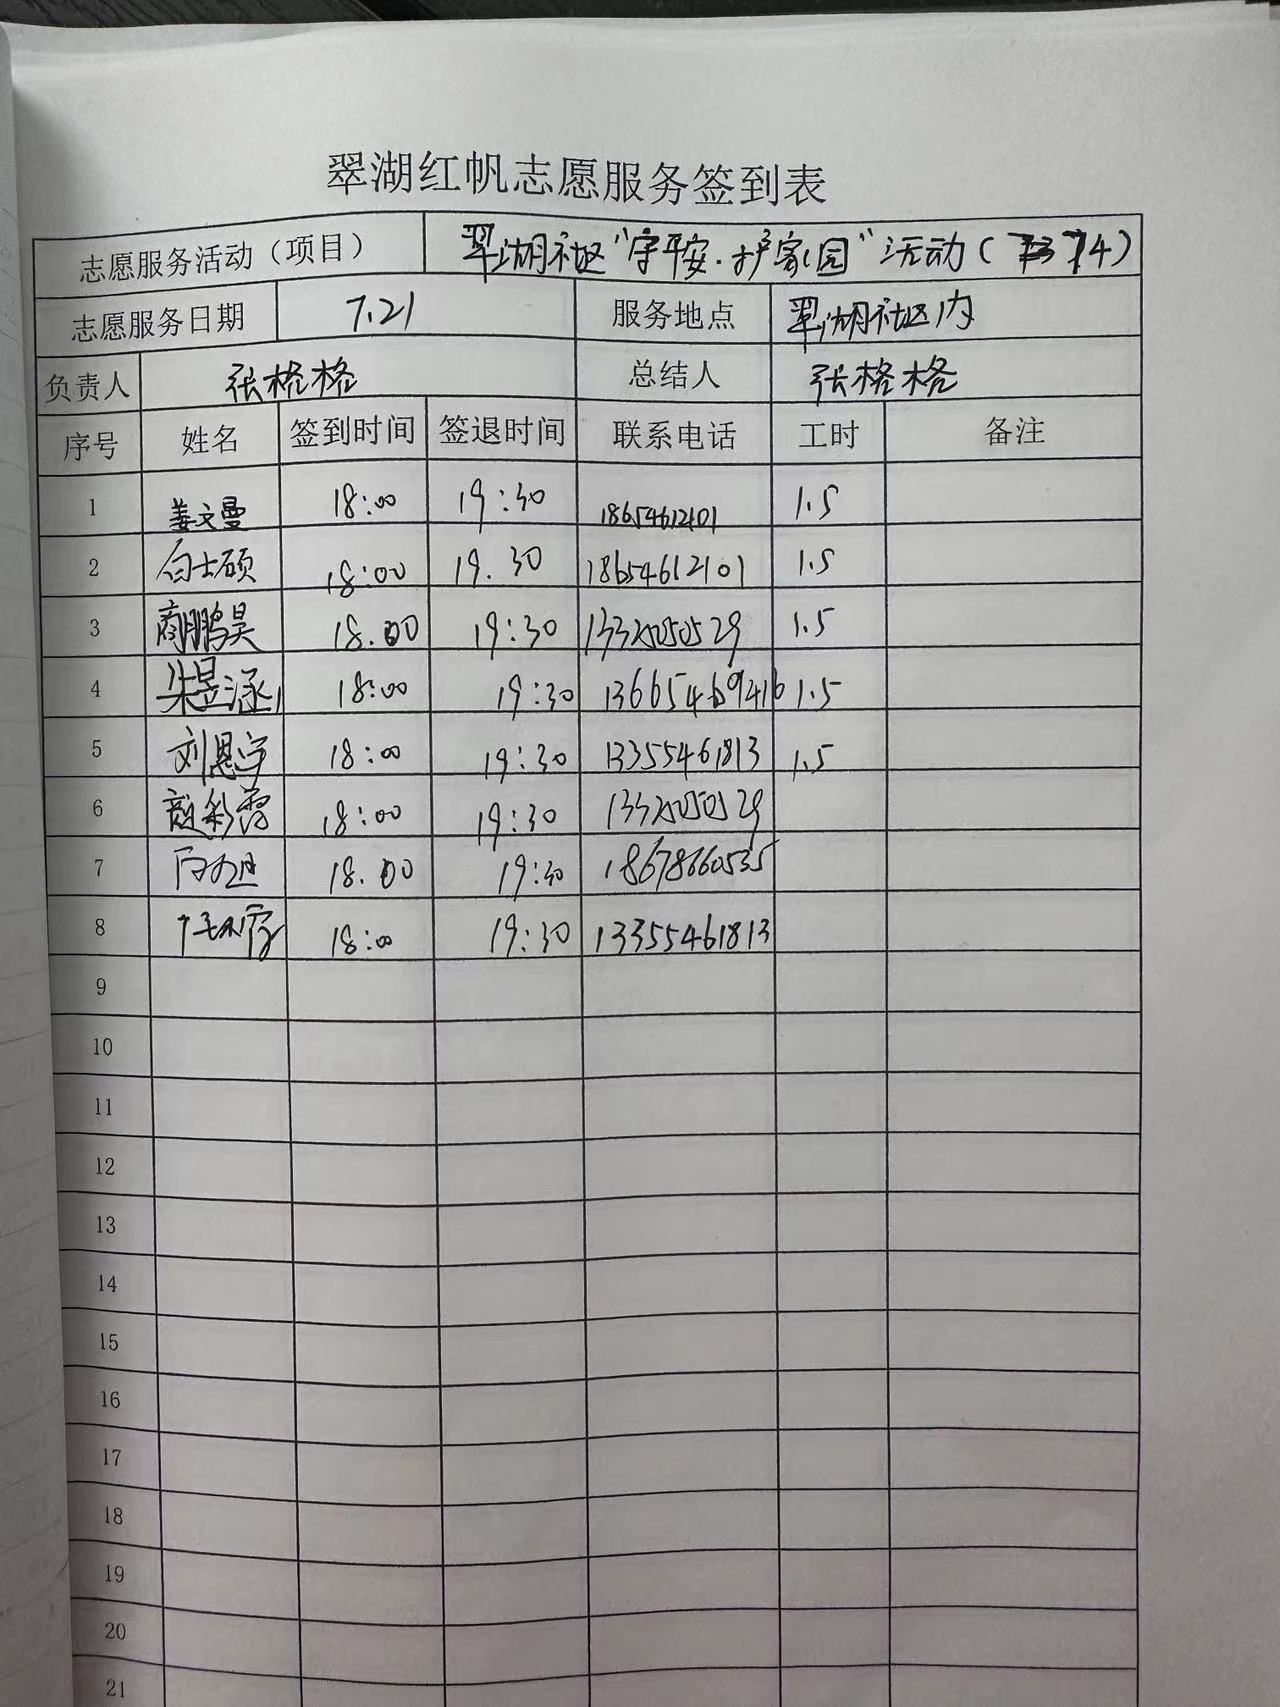 翠湖红帆志愿服务签到表
志愿服务活动（项目） 翠湖社区“守平安·护家园”活动（74）
志愿服务日期 7.21 服务地点 翠湖社区内
负责人 张格格 总结人 张格格
序号 姓名 签到时间 签退时间 联系电话 工时 备注
1 姜文曼 18:00 19:30 18654612101 1.5
2 白士硕 18:00 19.30 18654612101 1.5
3 商鹏昊 18.00 19:30 13325050529 1.5
4 朱昱涵 18:00 19:30 13665469416 1.5
5 刘恩宇 18:00 19:30 13355461813 1.5
6 18:00 19:30 13325050529
7 18.00 19:30 18678660535
8 18:00 19:30 13355461813
9
10
11
12
13
14
15
16
17
18
19
20
21